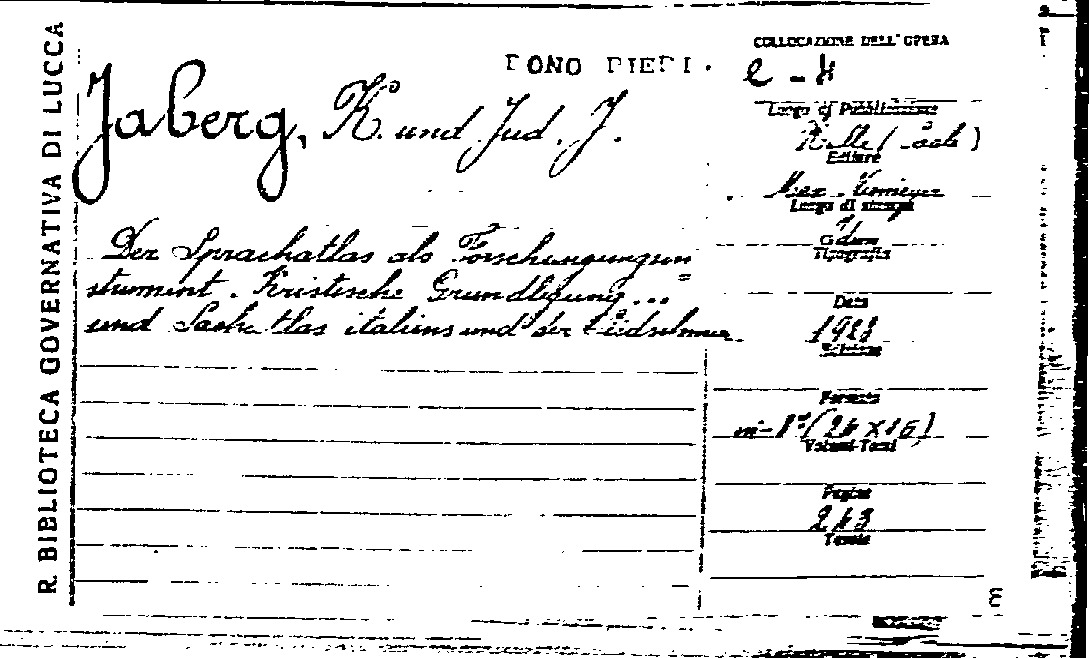 R. BIBLIOTECA GOVERNATIVA DI LUCCA
DONO PIERI.
Jaberg, K. und Jud, J.
Der Sprachatlas als Forschungungsin=
strument. Kristische Grundlegung...
und Sachatlas italiens und der
COLLOCAZIONE DELL'OPERA
Luogo di Pubblicazione
Halle (Saale)
Editore
Max Niemeyer
Luogo di stampa
Tipografia
Data
Edizione
Formato
in-8° (24 x 16)
Volumi-Tomi
Pagine
243
Tavole